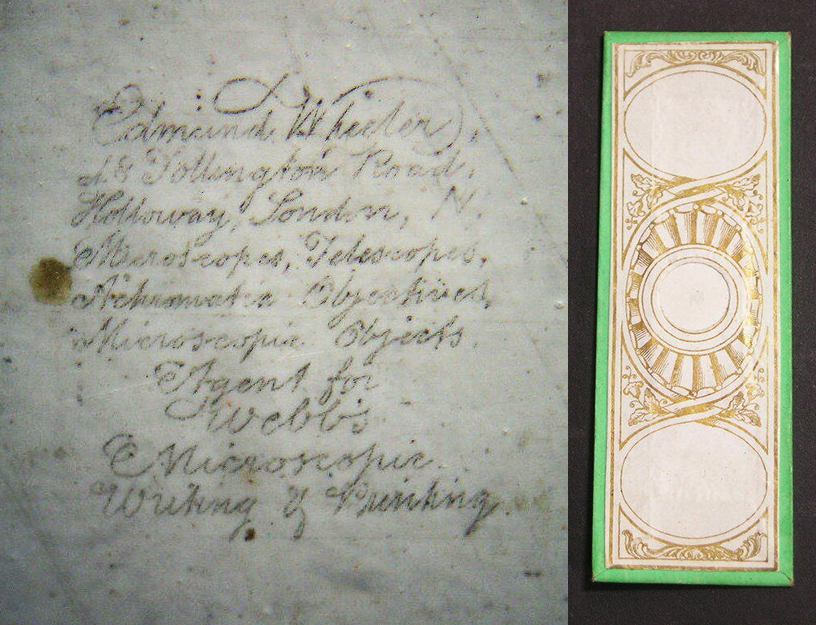 Edmund Wheeler,
48 Tollington Road,
Holloway, London, N.
Microscopes, Telescopes,
Achromatic Objectives,
Microscopic Objects.
Agent for
Webb's
Microscopic
Writing & Printing.